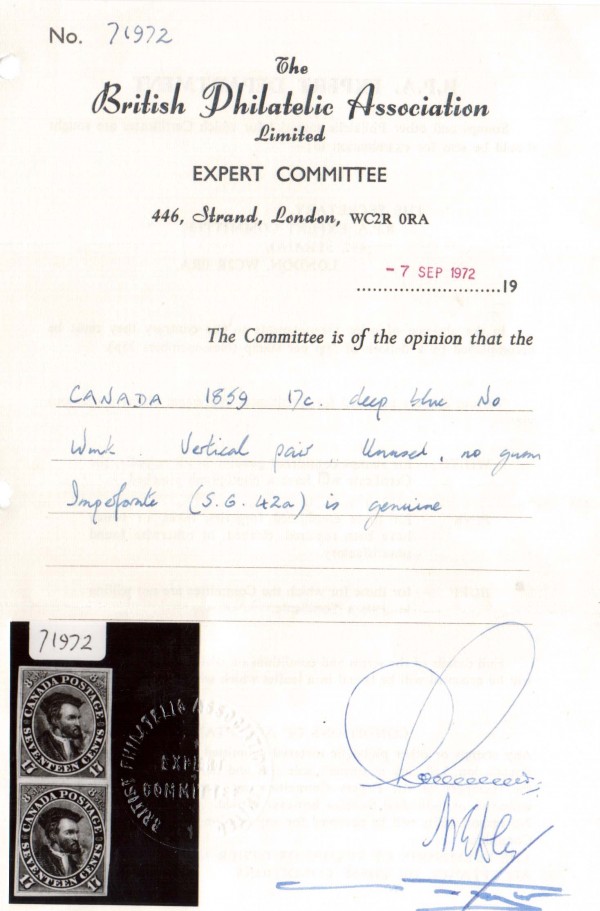 No. 71972
The
British Philatelic Association
Limited
EXPERT COMMITTEE
446, Strand, London, WC2R 0RA
- 7 SEP 1972
..........................19
The Committee is of the opinion that the
CANADA 1859 17c. deep blue No
Wmk. Vertical pair, Unused, no gum
Imperforate (S.G. 42a) is genuine
71972
CANADA POSTAGE
SEVENTEEN CENTS
17 17
CANADA POSTAGE
SEVENTEEN CENTS
17 17
BRITISH PHILATELIC ASSOCIATION
EXPERT
COMMITTEE